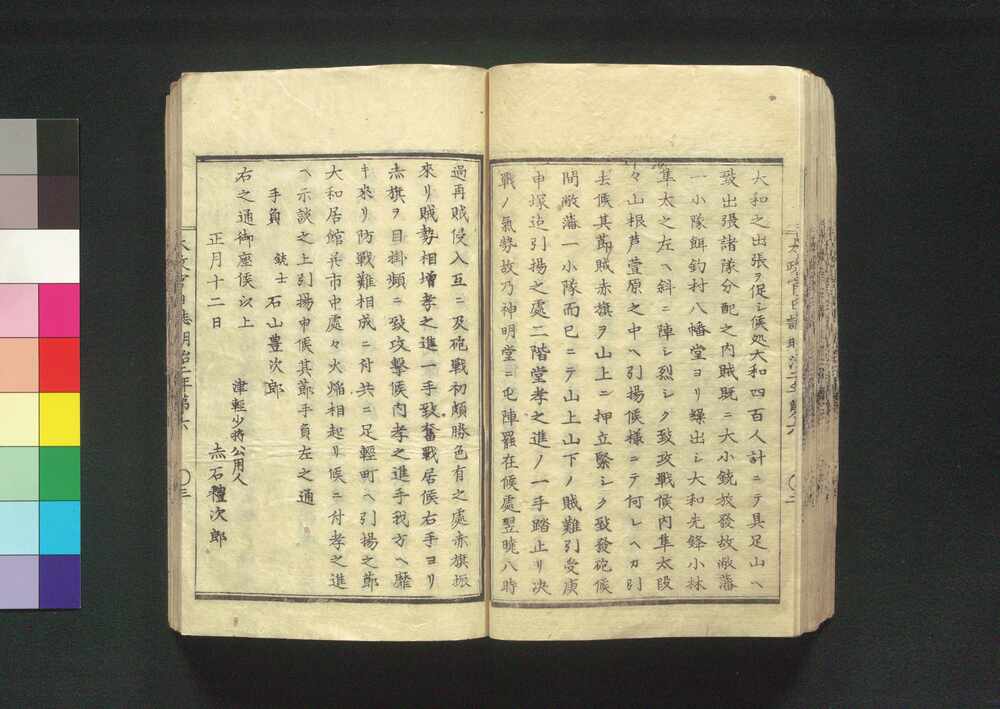 大和之出張ヲ促シ候処大和四百人計ニテ具足山ヘ
致出張諸隊分配之内賊既ニ大小銃放發故敝藩
一小隊餌釣村八幡堂ヨリ繰出シ大和先鋒小林
隼太之左ヘ斜ニ陣シ烈シク致攻戰候内隼太段
々山根芦萱原之中ヘ引揚候様ニテ何レヘカ引
去候其節賊赤旗ヲ山上ニ押立緊シク致發砲候
間敝藩一小隊而已ニテ山上山下ノ賊難引受庚
申塚迠引揚之處二階堂孝之進ノ一手踏止リ决
戰ノ氣勢故乃神明堂ニ屯陣罷在候處翌曉八時
過再賊侵入互ニ及砲戰初頗勝色有之處赤旗振
來リ賊勢相增孝之進一手致奮戰居候右手ヨリ
赤旗ヲ目掛頻ニ致攻擊候内孝之進手我方ヘ靡
キ來リ防戰難相成ニ付共ニ足輕町ヘ引揚之節
大和居館并市中處々火焔相起リ候ニ付孝之進
ヘ示談之上引揚申候其節手負左之通
手負
銃士 石山豊次郎
右之通御座候以上
正月十二日
津輕少將公用人
赤石禮次郎
太政官日誌明治二年第六 〇三